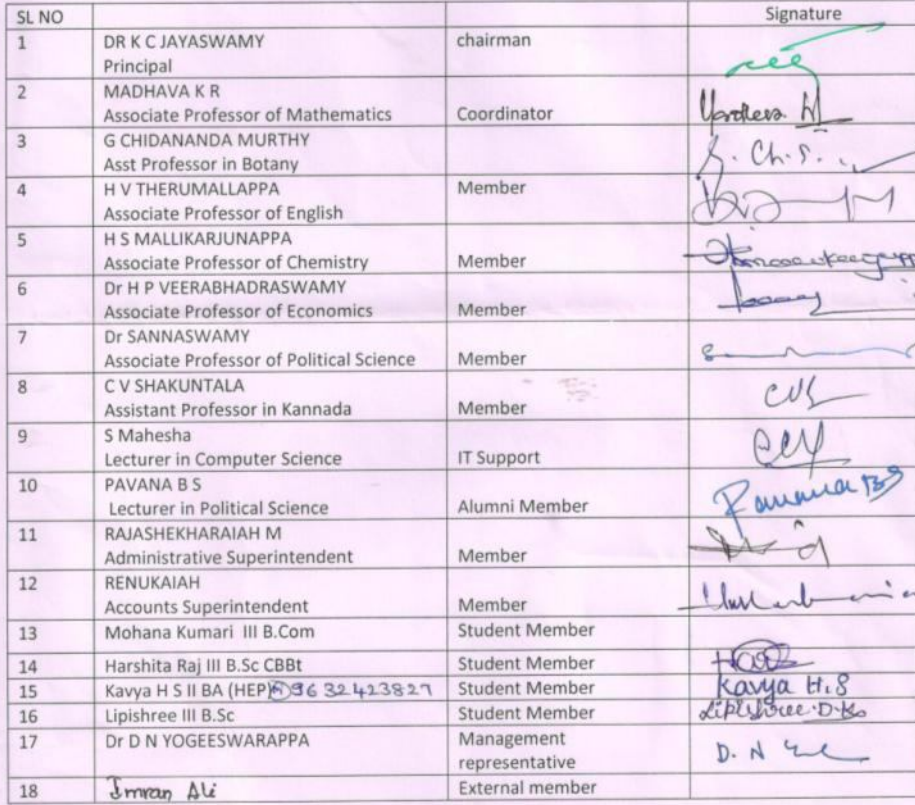 SL NO Signature
1 DR K C JAYASWAMY chairman
Principal
2 MADHAVA K R
Associate Professor of Mathematics Coordinator
3 G CHIDANANDA MURTHY
Asst Professor in Botany
G. Ch. S.
4 H V THERUMALLAPPA Member
Associate Professor of English
5 H S MALLIKARJUNAPPA
Associate Professor of Chemistry Member
6 Dr H P VEERABHADRASWAMY
Associate Professor of Economics Member
7 Dr SANNASWAMY
Associate Professor of Political Science Member
8 C V SHAKUNTALA
Assistant Professor in Kannada Member
CVS
9 S Mahesha
Lecturer in Computer Science IT Support
10 PAVANA B S
Lecturer in Political Science Alumni Member
Pavana BS
11 RAJASHEKHARAIAH M
Administrative Superintendent Member
12 RENUKAIAH
Accounts Superintendent Member
13 Mohana Kumari III B.Com Student Member
14 Harshita Raj III B.Sc CBBt Student Member
15 Kavya H S II BA (HEP) 9632423827 Student Member Kavya H.S
16 Lipishree III B.Sc Student Member Lipishree.D.K.
17 Dr D N YOGEESWARAPPA Management
representative
D. N
18 Imran Ali External member